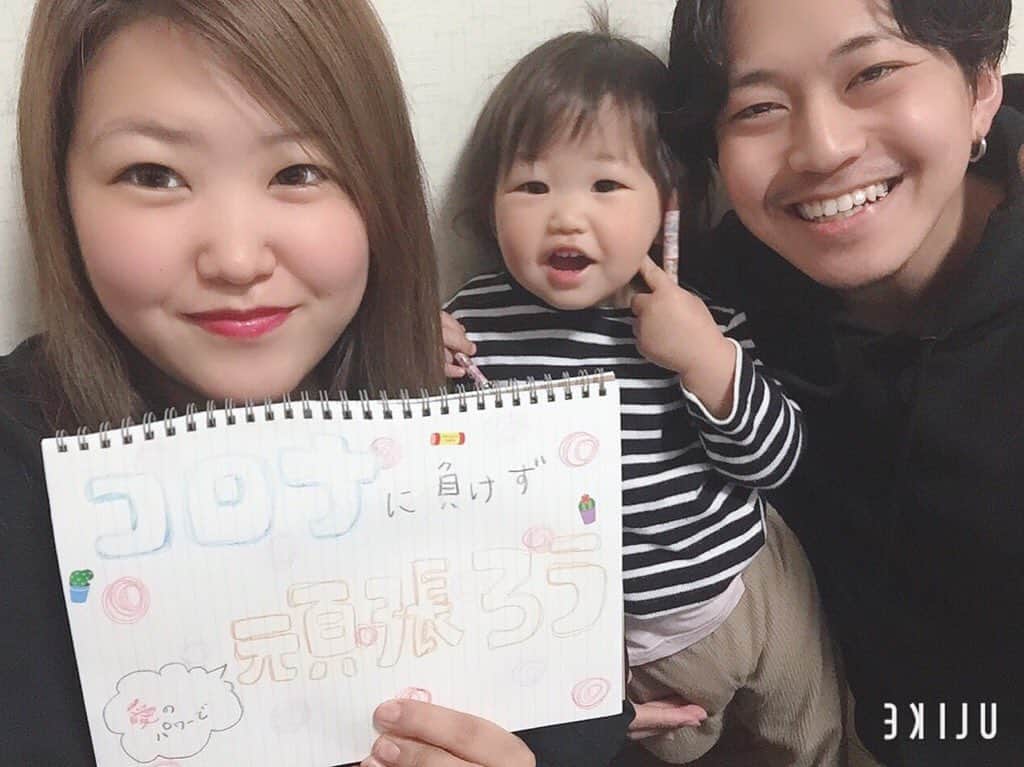 コロナに負けず
頑張ろう
愛の
パワーで
ULIKE